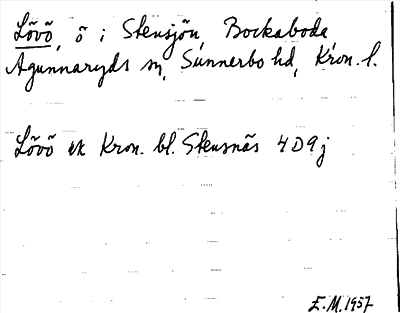 Lövö, ö i Stensjön, Bockaboda
Agunnaryds sn, Sunnerbo hd, Kron. l.
Lövö ek Kron. bl. Stensnäs 4D9j
E.M. 1957